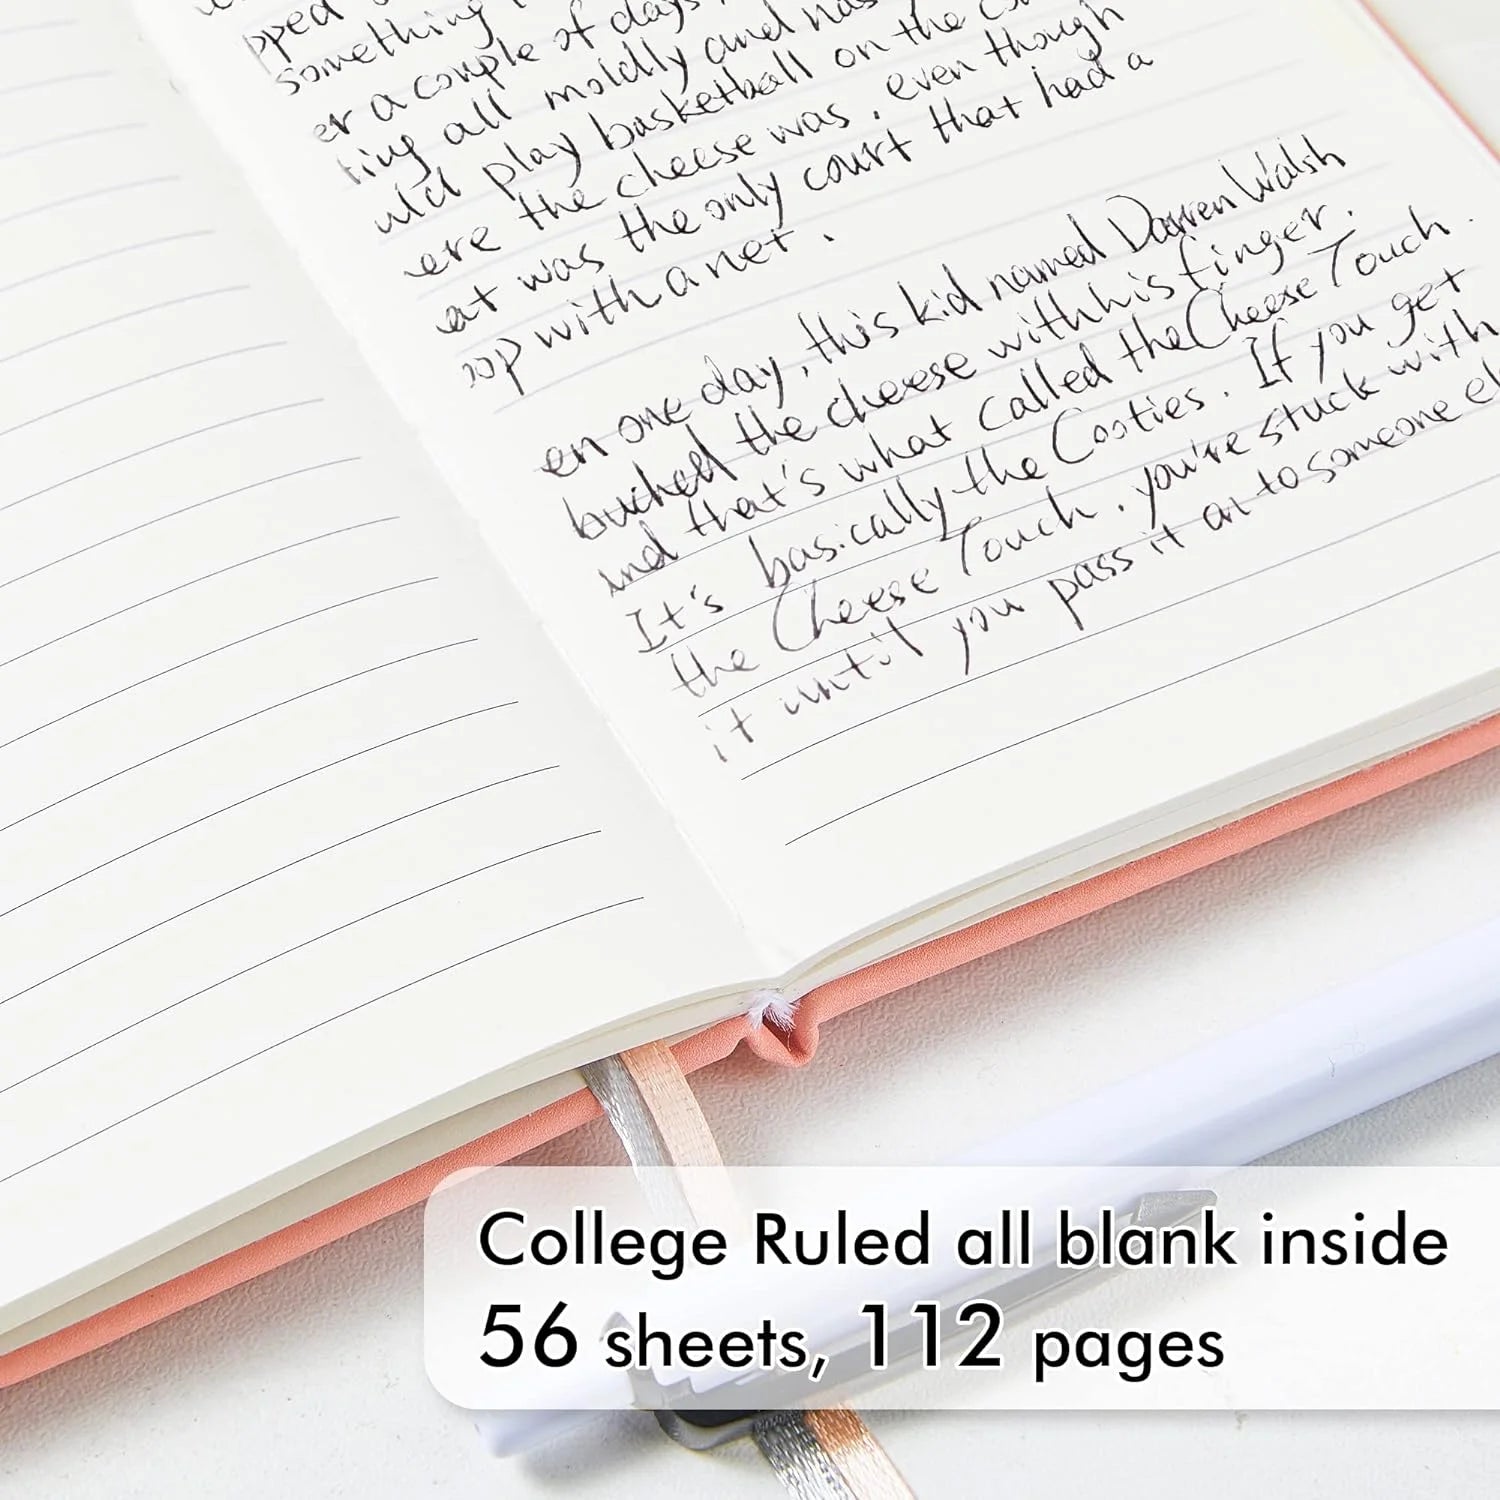 pped
something
er a couple of days,
ting all moldly and nas
uld play basketball on the
ere the cheese was, even though
at was the only court that had a
oop with a net.
en one day, this kid named Darren Walsh
the cheese with his finger.
and that's what called the Cheese Touch.
It's basically the Cooties. If you get
the Cheese Touch, you're stuck with
it until you pass it on to someone el
College Ruled all blank inside
56 sheets, 112 pages